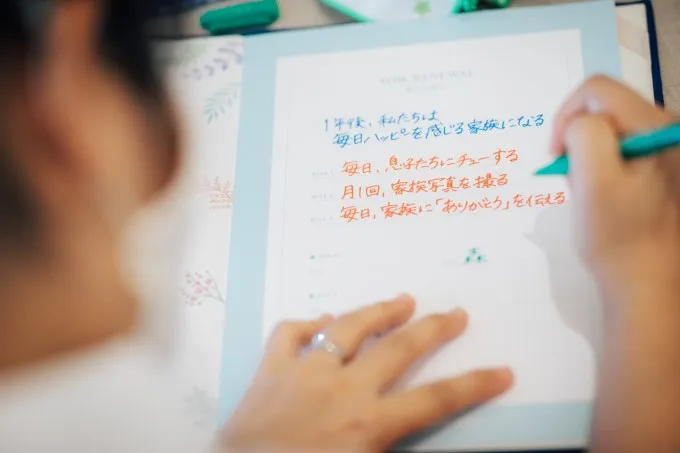 VOW RENEWAL
1年後、私たちは
毎日ハッピーを感じる家族になる
毎日、息子たちにチューする
月1回、家族写真を撮る
毎日、家族に「ありがとう」を伝える
森